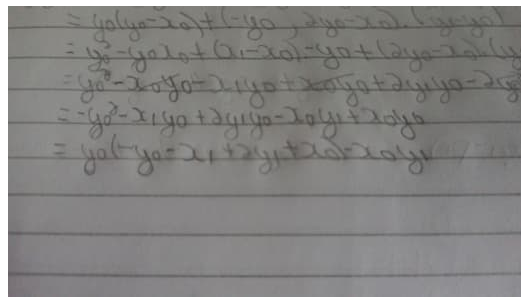 = y0(y0-x0)+(-y0, 2y0-x0).
= y0²-y0x0+(x1-x0)-y0+(2y0-x0)(y
= y0²-x0y0-x1y0+x0y0+2y1y0-2y0²
= -y0²-x1y0+2y1y0-x0y1+x0y0
= y0(-y0-x1+2y1+x0)-x0y1